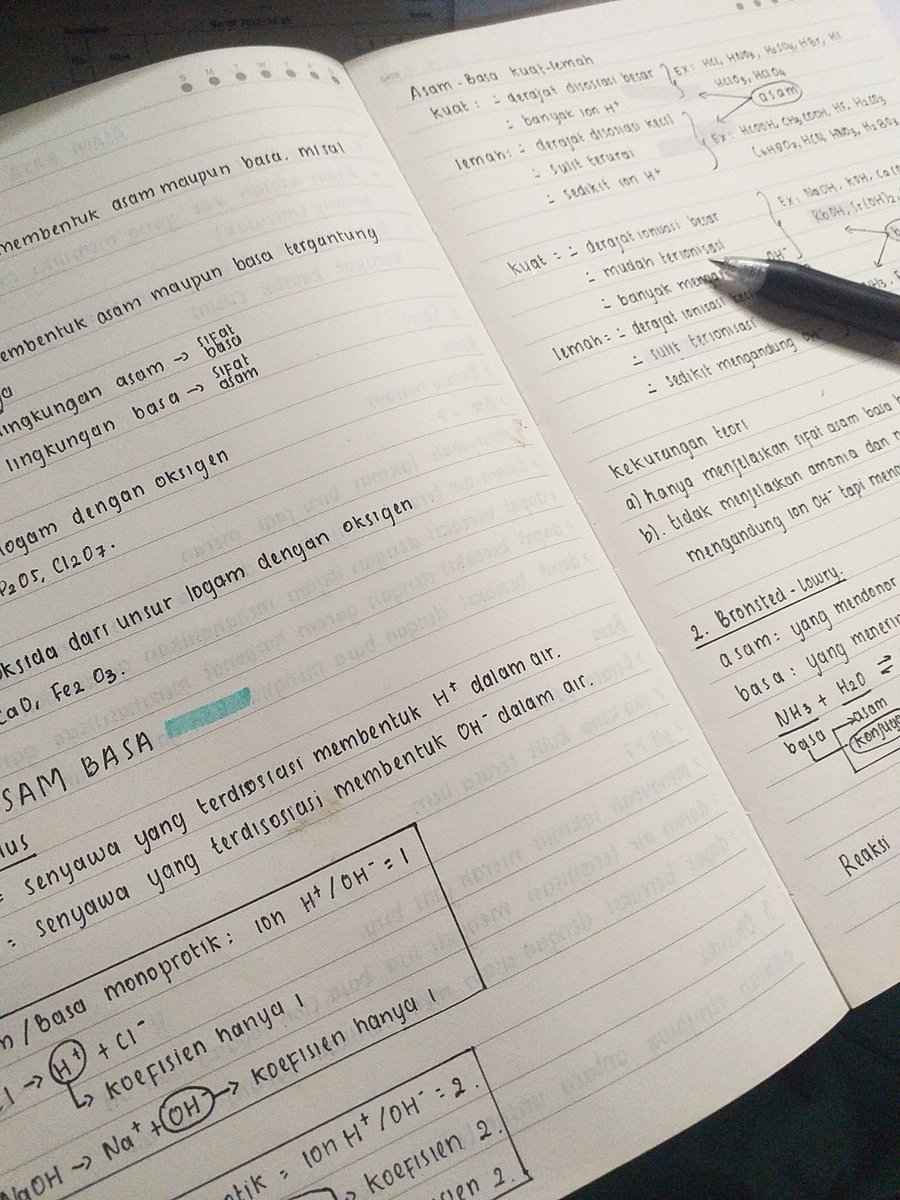 membentuk asam maupun basa, misal
membentuk asam maupun basa tergantung
lingkungan asam → sifat basa
lingkungan basa → sifat asam
logam dengan oksigen
P2O5, Cl2O7.
oksida dari unsur logam dengan oksigen
CaO, Fe2O3.
SAM BASA
= senyawa yang terdisosiasi membentuk H+ dalam air.
= senyawa yang terdisosiasi membentuk OH- dalam air.
/Basa monoprotik : ion H+/OH- = 1
→ H+ + Cl-
↳ koefisien hanya 1
NaOH → Na+ + OH- → koefisien hanya 1
otik = ion H+/OH- = 2.
koefisien 2.
2.
S M T W T F S
DATE
Asam-Basa kuat-lemah
kuat : - derajat disosiasi besar
- banyak ion H+
Ex: HCl, HNO3, H2SO4, HBr, HI
HClO3, HClO4
asam
lemah: - derajat disosiasi kecil
- sulit terurai
- sedikit ion H+
Ex: HCOOH, CH3COOH, HF, H2CO3
HCN, HNO2, H2SO3
kuat = - derajat ionisasi besar
- mudah terionisasi
- banyak OH-
Ex: NaOH, KOH,
RbOH, Sr(OH)2,
lemah: - derajat ionisasi
- sulit terionisasi
- sedikit mengandung OH-
kekurangan teori
a) hanya menjelaskan sifat asam basa
b). tidak menjelaskan amonia dan
mengandung ion OH- tapi
2. Bronsted-lowry.
asam: yang mendonor
basa: yang
NH3 + H2O ⇌
basa asam
Reaksi